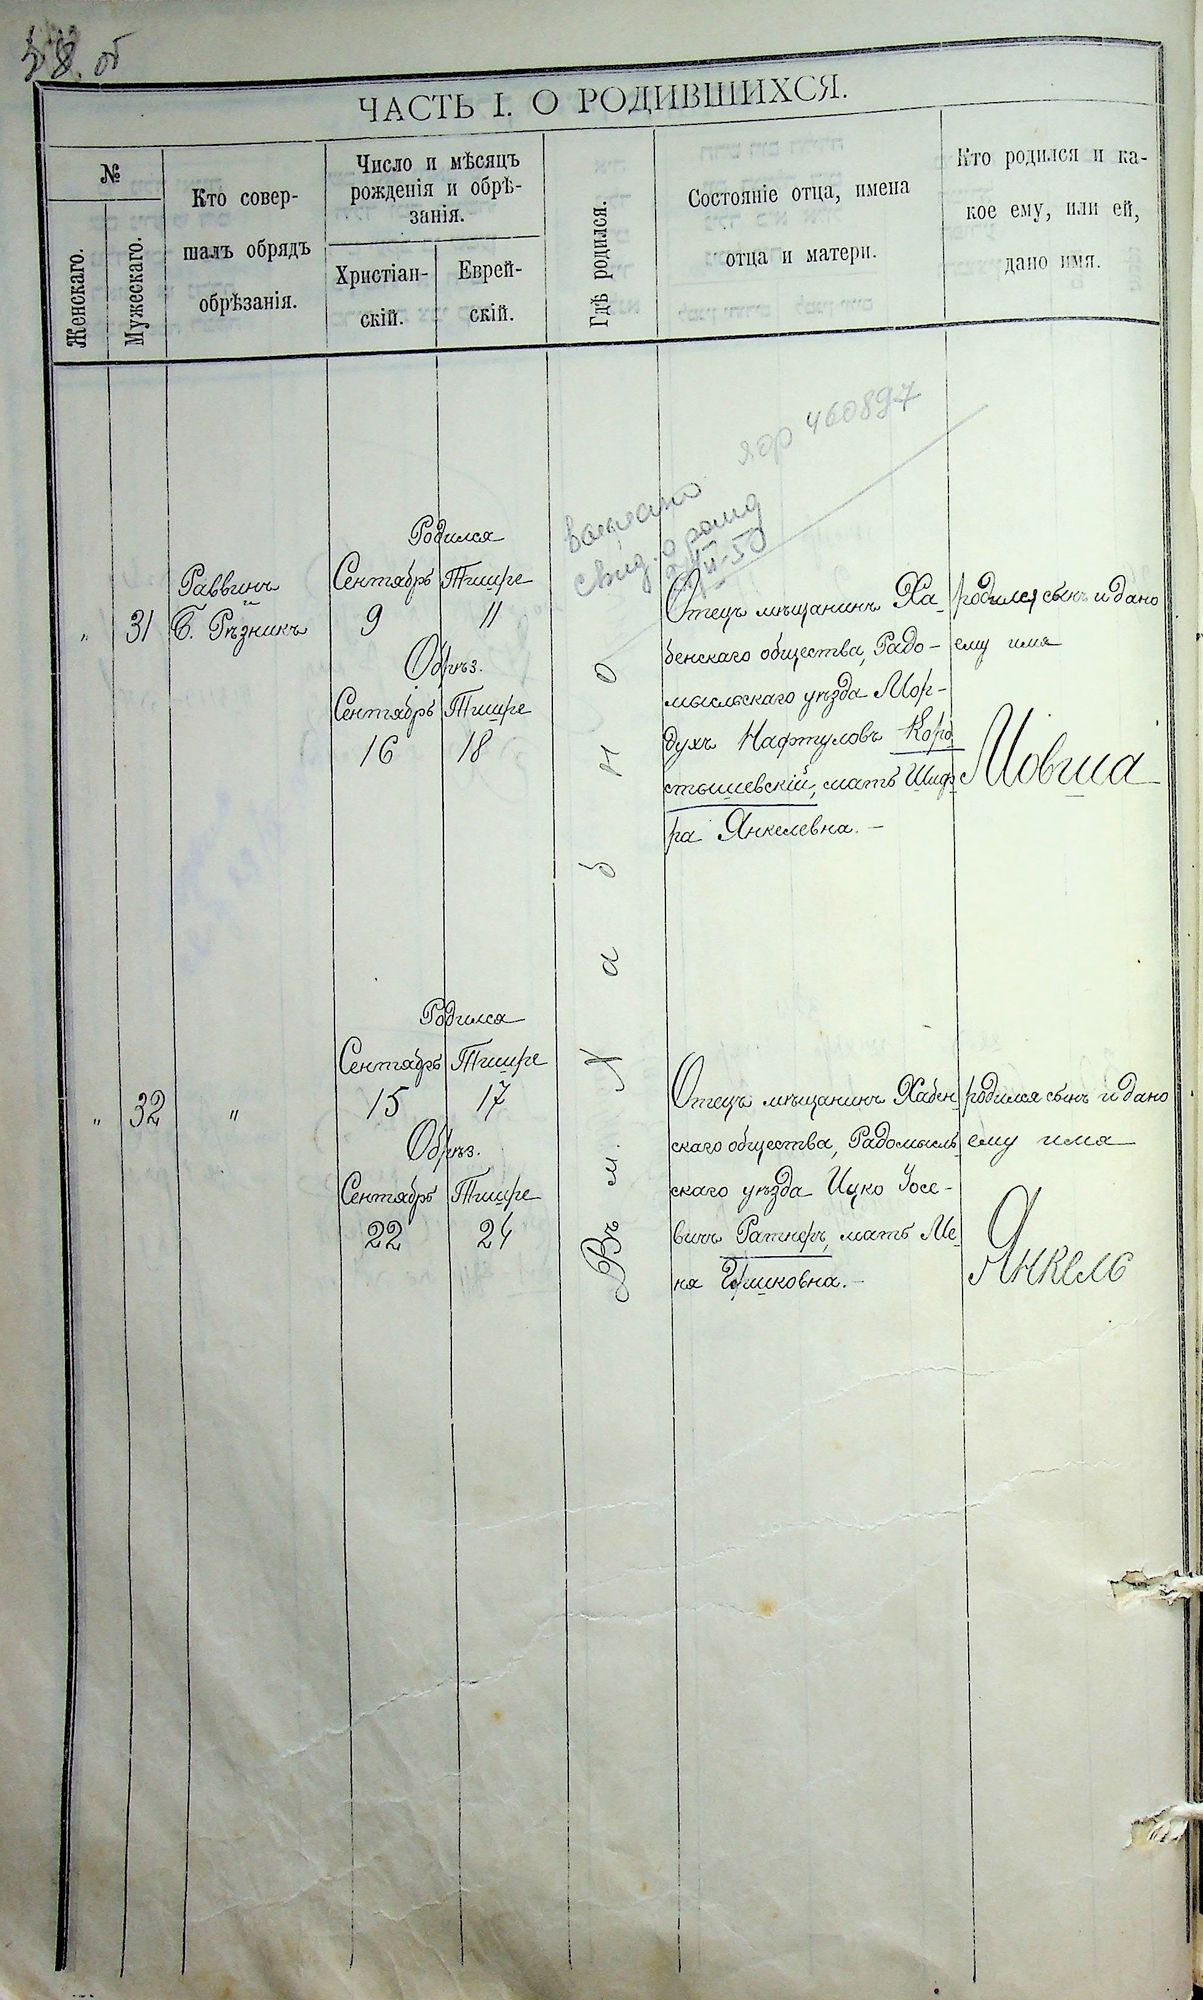 об
ЧАСТЬ I. О РОДИВШИХСЯ.
№
Женскаго.
Мужескаго.
Кто совер-
шалъ обрядъ
обрѣзанія.
Число и мѣсяцъ
рожденія и обрѣ-
занія.
Христіан-
скій.
Еврей-
скій.
Гдѣ родился.
Состояніе отца, имена
отца и матери.
Кто родился и ка-
кое ему, или ей,
дано имя.
460897
свид. о
"
31
Раввинъ
Б. Рѣзникъ
Родился
Сентябрь Тишре
9 11
Обрѣз.
Сентябрь Тишре
16 18
Въ м. Хабно
Отецъ мѣщанинъ Ха-
бенскаго общества, Радо-
мысльскаго уѣзда Мор-
духъ Нафтуловъ Коро
стышевскій, мать Шиф-
ра Янкелевна. —
родился сынъ и дано
ему имя
Мовша
"
32
"
Родился
Сентябрь Тишре
15 17
Обрѣз.
Сентябрь Тишре
22 24
Отецъ мѣщанинъ Хабен
скаго общества, Радомысль
скаго уѣзда Ицко Іосе-
вичъ Ратнеръ, мать Ме-
ня —
родился сынъ и дано
ему имя
Янкель